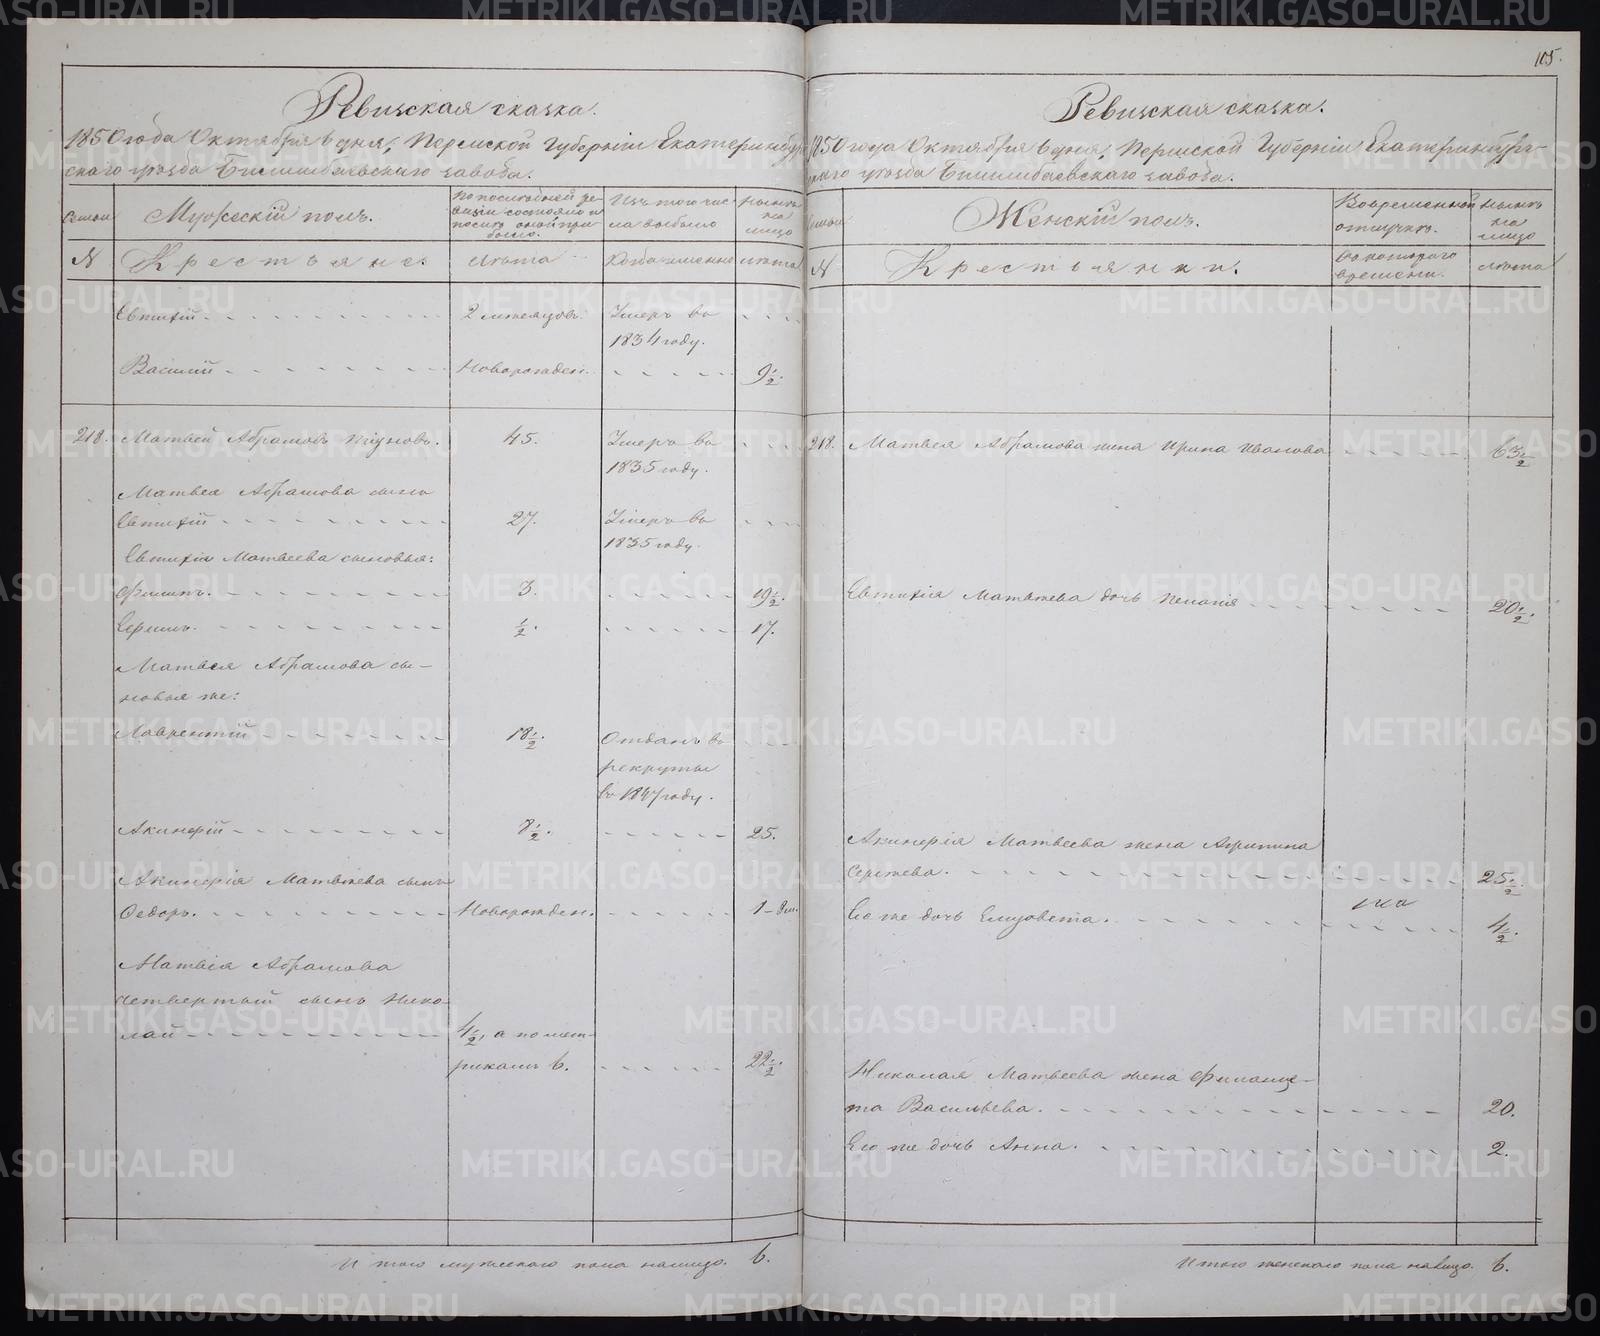 105.
Ревижская сказка.
1850 года Октября 6 дня, Пермской Губерніи Екатеринбур-
скаго уѣзда Билимбаевскаго завода.
Семьи
Мужескій полъ.
По последней ре-
визіи состояло и
после оной при-
было.
Изъ того чис-
ла выбыло
Нынѣ
на
лицо
N
Крестьяне.
Лѣта
Когда именно
лѣта
Евтихій
2 мѣсяцовъ.
Умеръ въ
1834 году.
Василій
Новорожден.
9 1/2.
218.
Матвей Абрамовъ
45.
Умеръ въ
1835 году.
Матвея Абрамова сынъ
Евтихій
27.
Умеръ въ
1835 году.
Евтихія Матвеева сыновья:
Филипъ.
3.
19 1/2.
1/2.
17.
Матвея Абрамова сы-
новья же:
Лаврентій
18 1/2.
Отданъ въ
рекруты
въ 1847 году.
Акинфій
8 1/2.
25.
Акинфія Матвѣева сынъ
Федоръ.
Новорожден.
Матвія Абрамова
четвертый сынъ Нико-
лай
4 1/2, а по мет-
рикамъ 6.
22 1/2.
Итого мужескаго пола налицо. 6.
Ревижская сказка.
1850 года Октября 6 дня, Пермской Губерніи Екатеринбур-
скаго уѣзда Билимбаевскаго завода.
Семьи
Женскій полъ.
Во временной
отлучкѣ.
Нынѣ
на
лицо
N
Крестьянки.
Съ котораго
времени.
лѣта
218.
Матвея Абрамова жена Ирина Иванова
63 1/2
Евтихія Матвѣева дочь Пелагія
20 1/2.
Акинфія Матвеева жена Агрипина
Сергѣева.
25 1/2.
Его же дочь Елизовета.
4 1/2.
Николая Матвеева жена Филаице-
та Васильева.
20.
Его же дочь Анна.
2.
Итого женскаго пола налицо. 6.
METRIKI.GASO-URAL.RU